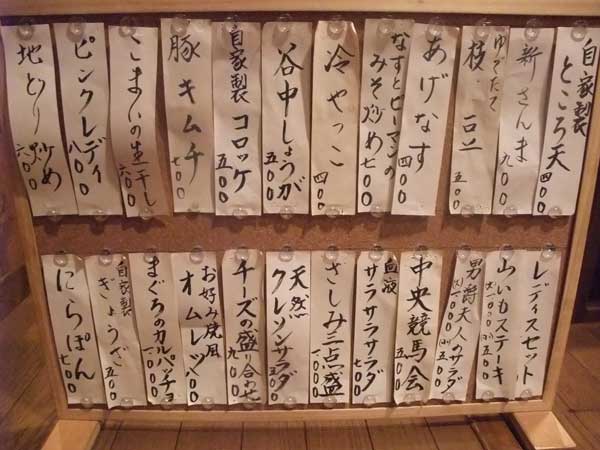 自家製
ところ天
四〇〇
新さんま
九〇〇
ゆでたて
枝豆
五〇〇
あげなす
四〇〇
なすとピーマンの
みそ炒め
七〇〇
冷やっこ
四〇〇
谷中しょうが
五〇〇
自家製
コロッケ
五〇〇
豚キムチ
七〇〇
こまいの生干し
六〇〇
ピンクレディ
八〇〇
地どり炒め
六〇〇
レディスセット
山いもステーキ
(大)一〇〇〇 (小)五〇〇
男爵夫人のサラダ
(大)一〇〇〇 (小)五〇〇
中央競馬会
五〇〇
血液
サラサラサラダ
七〇〇
さしみ三点盛
一〇〇〇
天然
クレソンサラダ
五〇〇
チーズの盛り合わせ
九〇〇
お好み焼風
オムレツ
まぐろのカルパッチョ
一〇〇〇
自家製
ぎょうざ
五〇〇
にらぽん
七〇〇